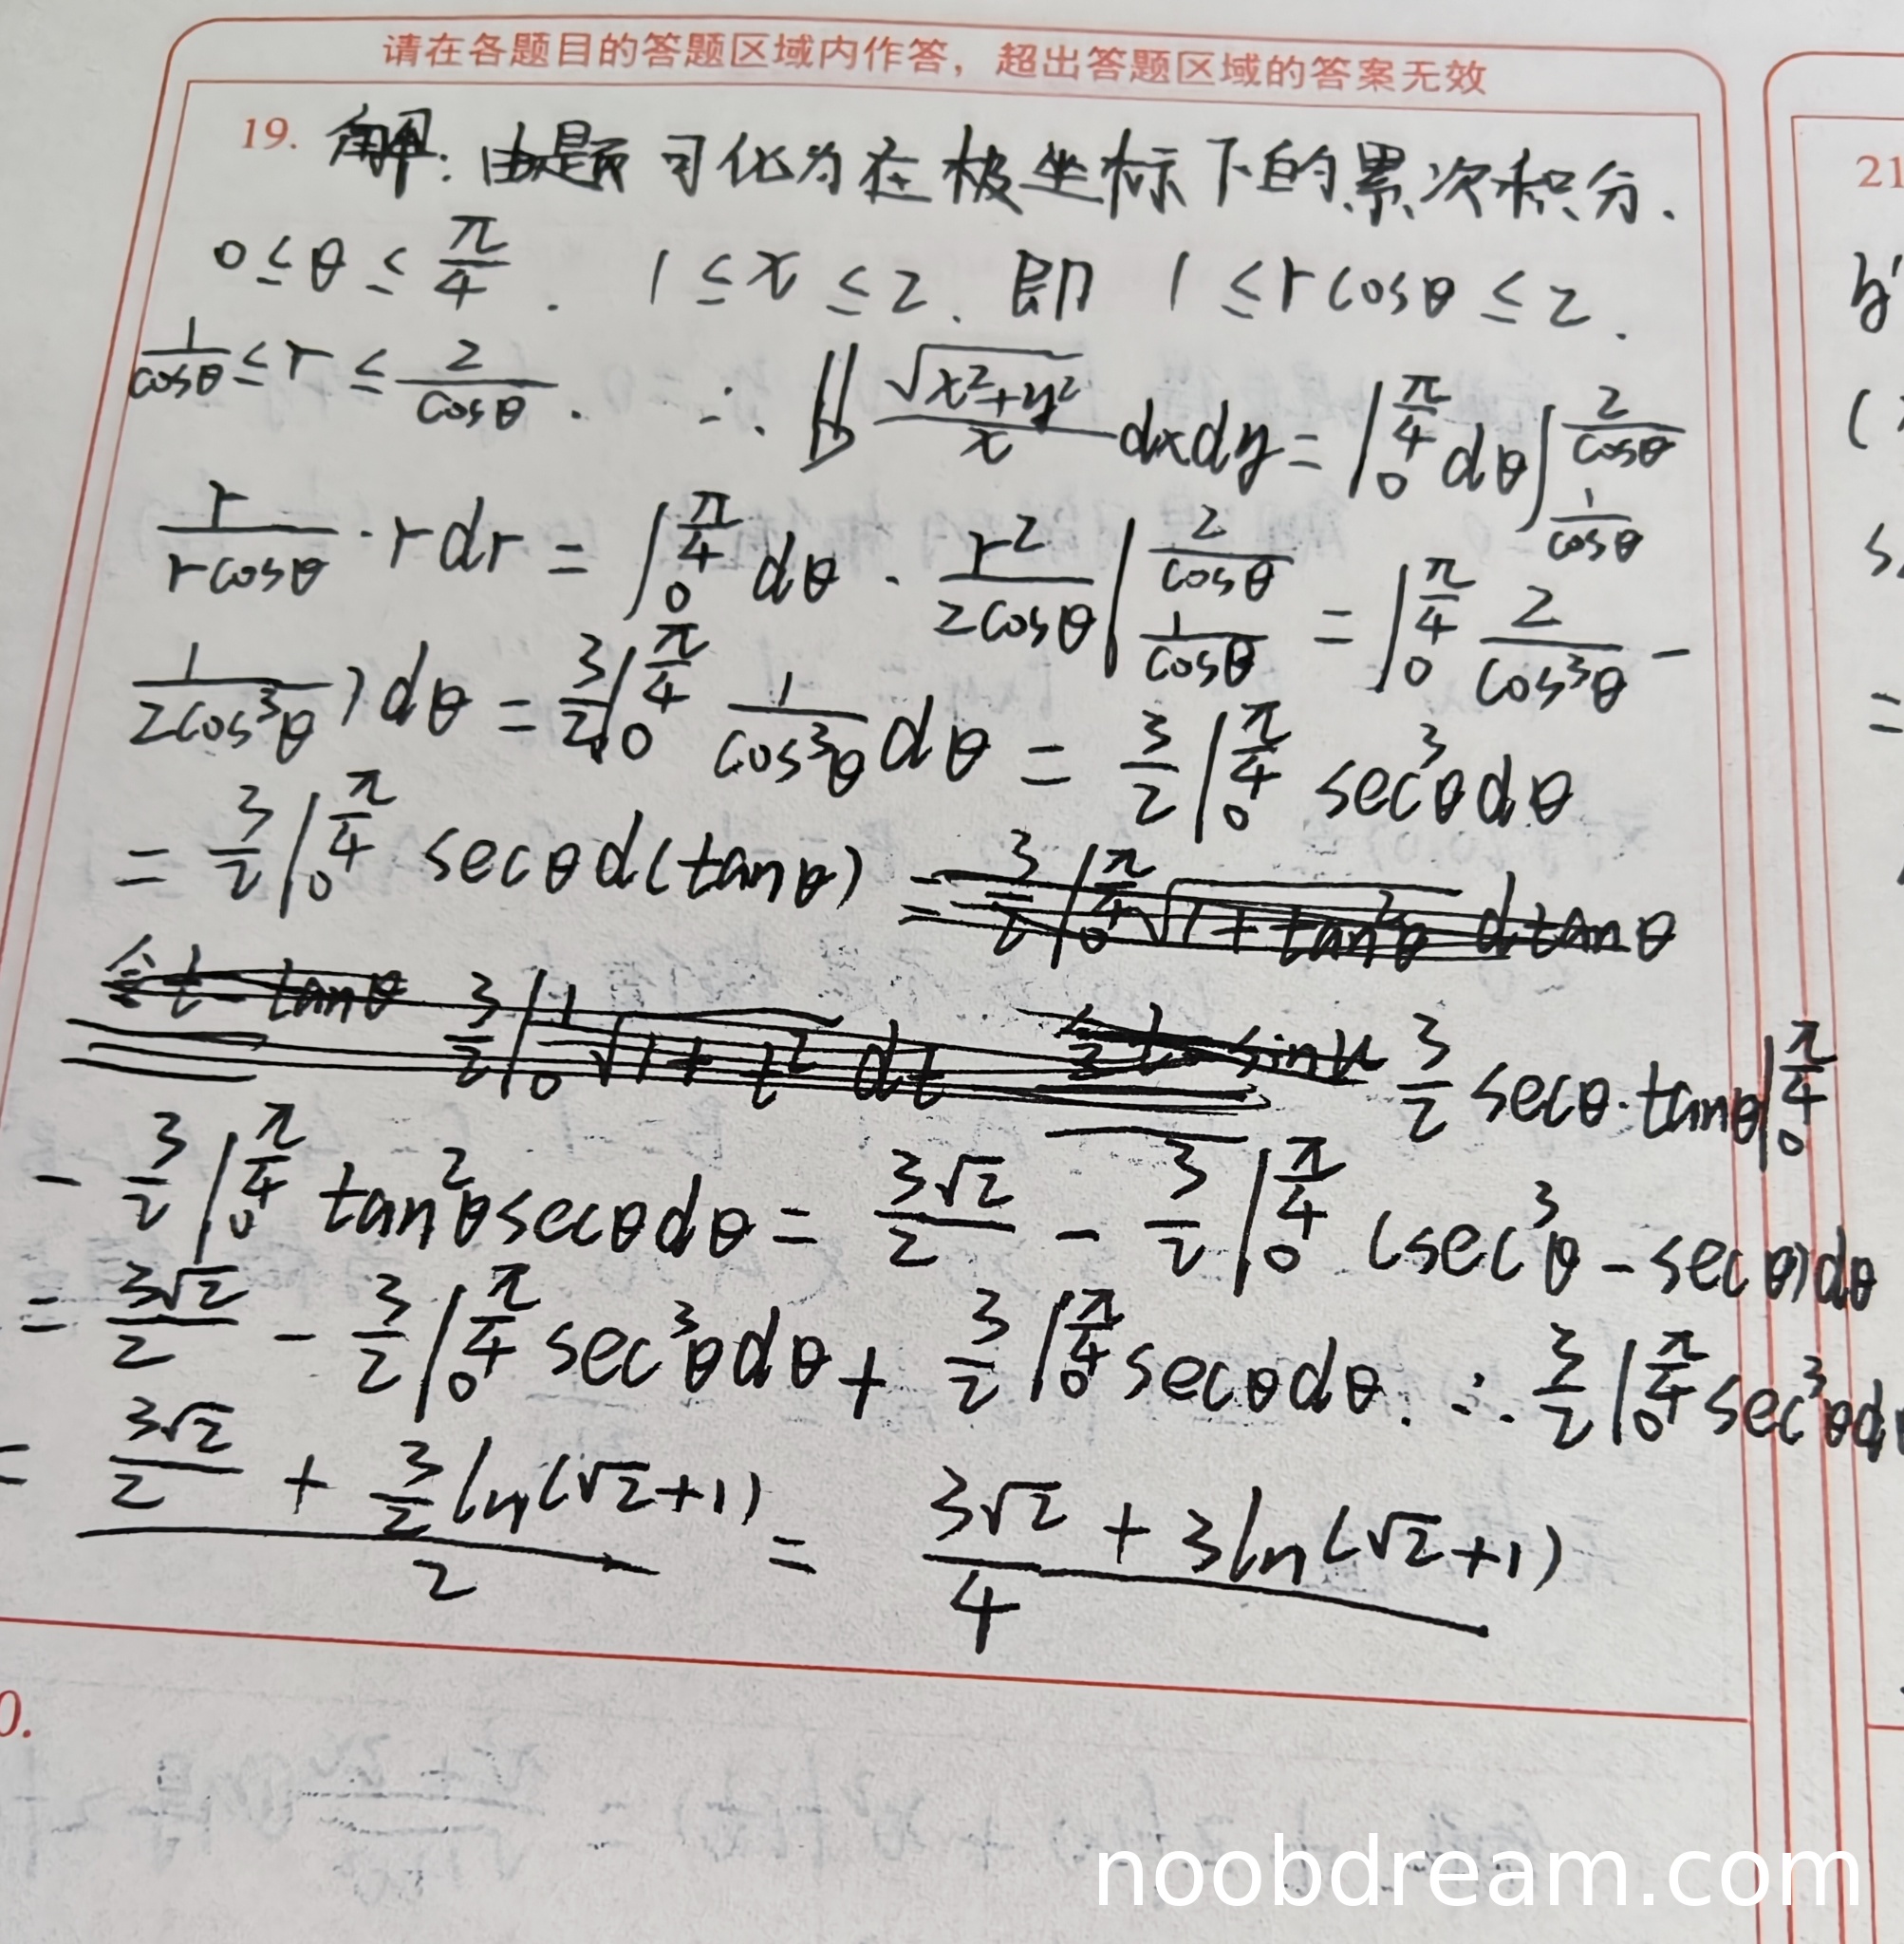 请在各题目的答题区域内作答，超出答题区域的答案无效
19. 解：由题可化为在极坐标下的累次积分.
0≤θ≤π/4. 1≤x≤2. 即 1≤rcosθ≤2.
1/cosθ≤r≤2/cosθ. ∴∬_D √(x²+y²)/x dxdy=∫_0^{π/4}dθ∫_{1/cosθ}^{2/cosθ}
r/(rcosθ)·rdr=∫_0^{π/4}dθ·r²/(2cosθ)|_{1/cosθ}^{2/cosθ}=∫_0^{π/4} 2/cos³θ-
1/(2cos³θ))dθ=3/2∫_0^{π/4} 1/cos³θ dθ=3/2∫_0^{π/4}sec³θdθ
=3/2∫_0^{π/4}secθd(tanθ) =3/2∫_0^{π/4}√(1+tan²θ) dtanθ
令t=tanθ 3/2∫_0^1√(1+t²)dt 令t=sinu 3/2 secθ·tanθ|_0^{π/4}
-3/2∫_0^{π/4}tan²θsecθdθ=3√2/2-3/2∫_0^{π/4}(sec³θ-secθ)dθ
=3√2/2-3/2∫_0^{π/4}sec³θdθ+3/2∫_0^{π/4}secθdθ.∴3/2∫_0^{π/4}sec³θd
=(3√2/2+3/2ln(√2+1))/2=(3√2+3ln(√2+1))/4
0.
21
noobdream.com